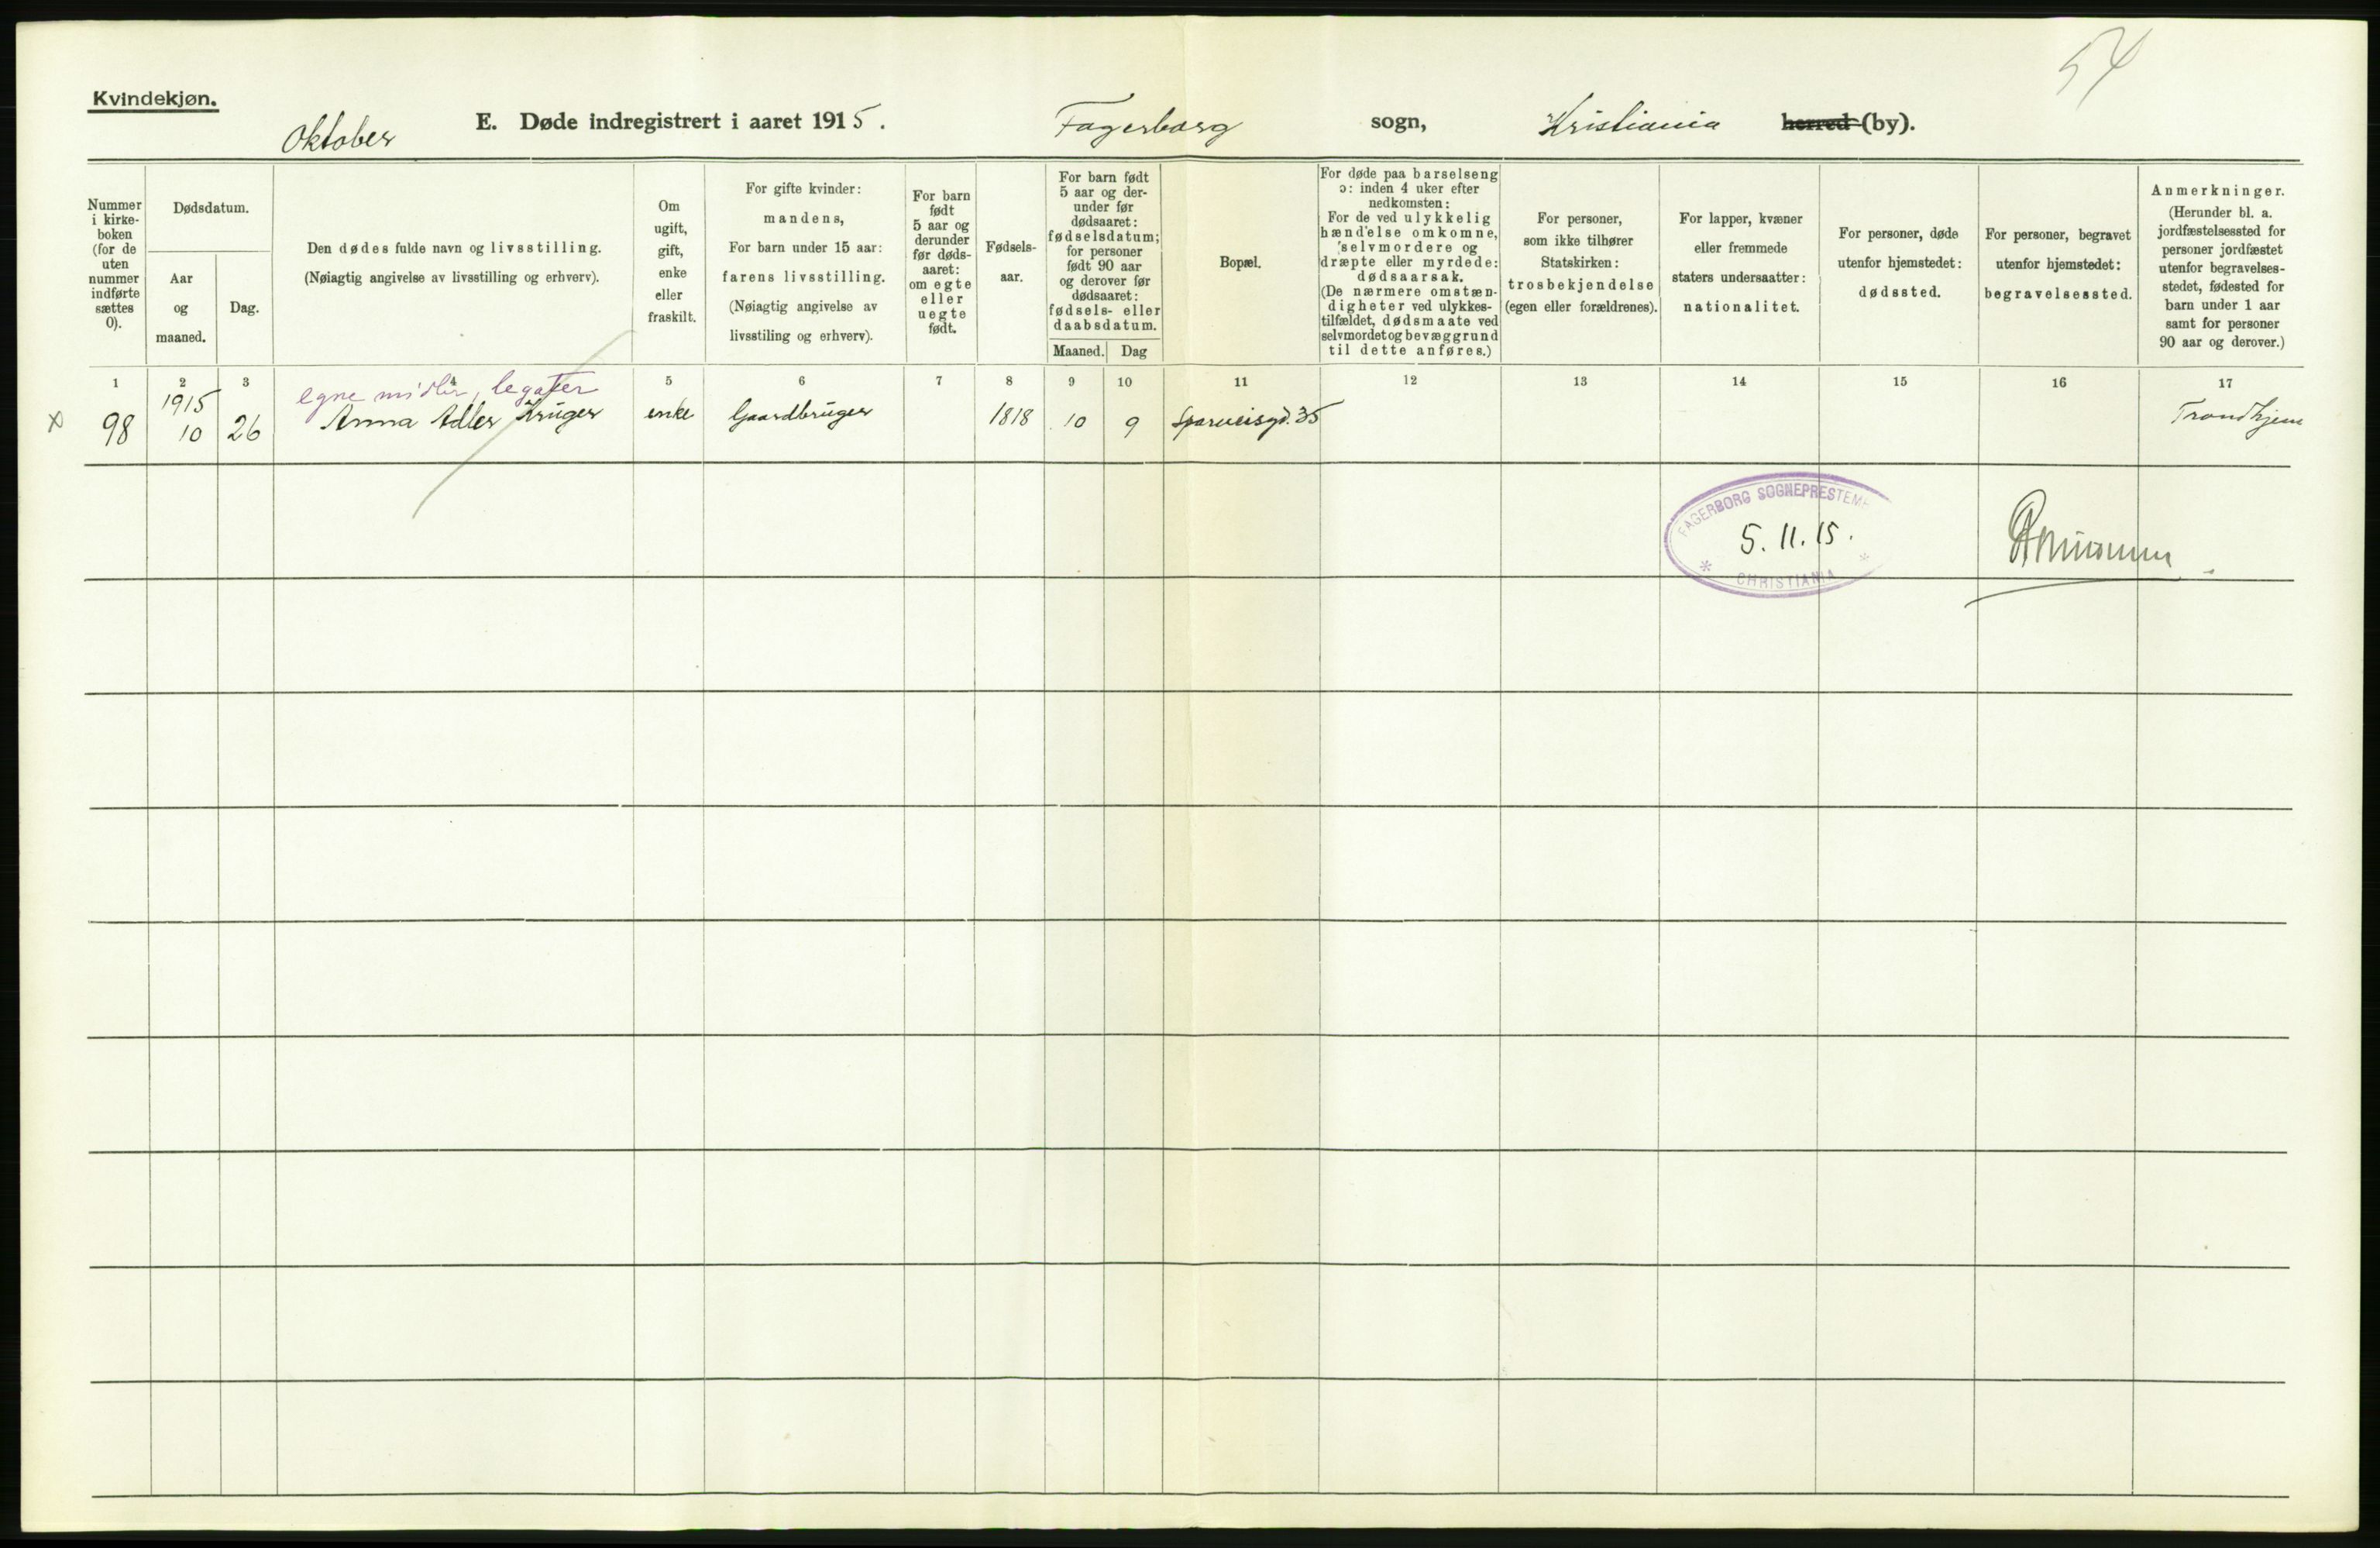 54
Kvindekjøn.
Oktober E. Døde indregistrert i aaret 1915. Fagerborg sogn, Kristiania herred (by).
Nummer
i kirke-
boken
(for de
uten
nummer
indførte
sættes
0).
Dødsdatum.
Aar
og
maaned.
Dag.
Den dødes fulde navn og livsstilling.
(Nøiagtig angivelse av livsstilling og erhverv).
Om
ugift,
gift,
enke
eller
fraskilt.
For gifte kvinder:
mandens,
For barn under 15 aar:
farens livsstilling.
(Nøiagtig angivelse av
livsstiling og erhverv).
For barn
født
5 aar og
derunder
før døds-
aaret:
om egte
eller
uegte
født.
Fødsels-
aar.
For barn født
5 aar og der-
under før
dødsaaret:
fødselsdatum;
for personer
født 90 aar
og derover før
dødsaaret:
fødsels- eller
daabsdatum.
Maaned. Dag
Bopæl.
For døde paa barselseng
ɔ: inden 4 uker efter
nedkomsten:
For de ved ulykkelig
hændelse omkomne,
selvmordere og
dræpte eller myrdede:
dødsaarsak.
(De nærmere omstæn-
digheter ved ulykkes-
tilfældet, dødsmaate ved
selvmordet og bevæggrund
til dette anføres.)
For personer,
som ikke tilhører
Statskirken:
trosbekjendelse
(egen eller forældrenes).
For lapper, kvæner
eller fremmede
staters undersaatter:
nationalitet.
For personer, døde
utenfor hjemstedet:
dødssted.
For personer, begravet
utenfor hjemstedet:
begravelsessted.
Anmerkninger.
(Herunder bl. a.
jordfæstelsessted for
personer jordfæstet
utenfor begravelses-
stedet, fødested for
barn under 1 aar
samt for personer
90 aar og derover.)
1 2 3 4 5 6 7 8 9 10 11 12 13 14 15 16 17
egne midler, legater
1915
x 98 10 26 Anna Adler Krüger enke Gaardbruger 1818 10 9 Sporveisgd. 35 Trondhjem
FAGERBORG SOGNEPRESTEM
5. 11. 15.
* CHRISTIANIA *